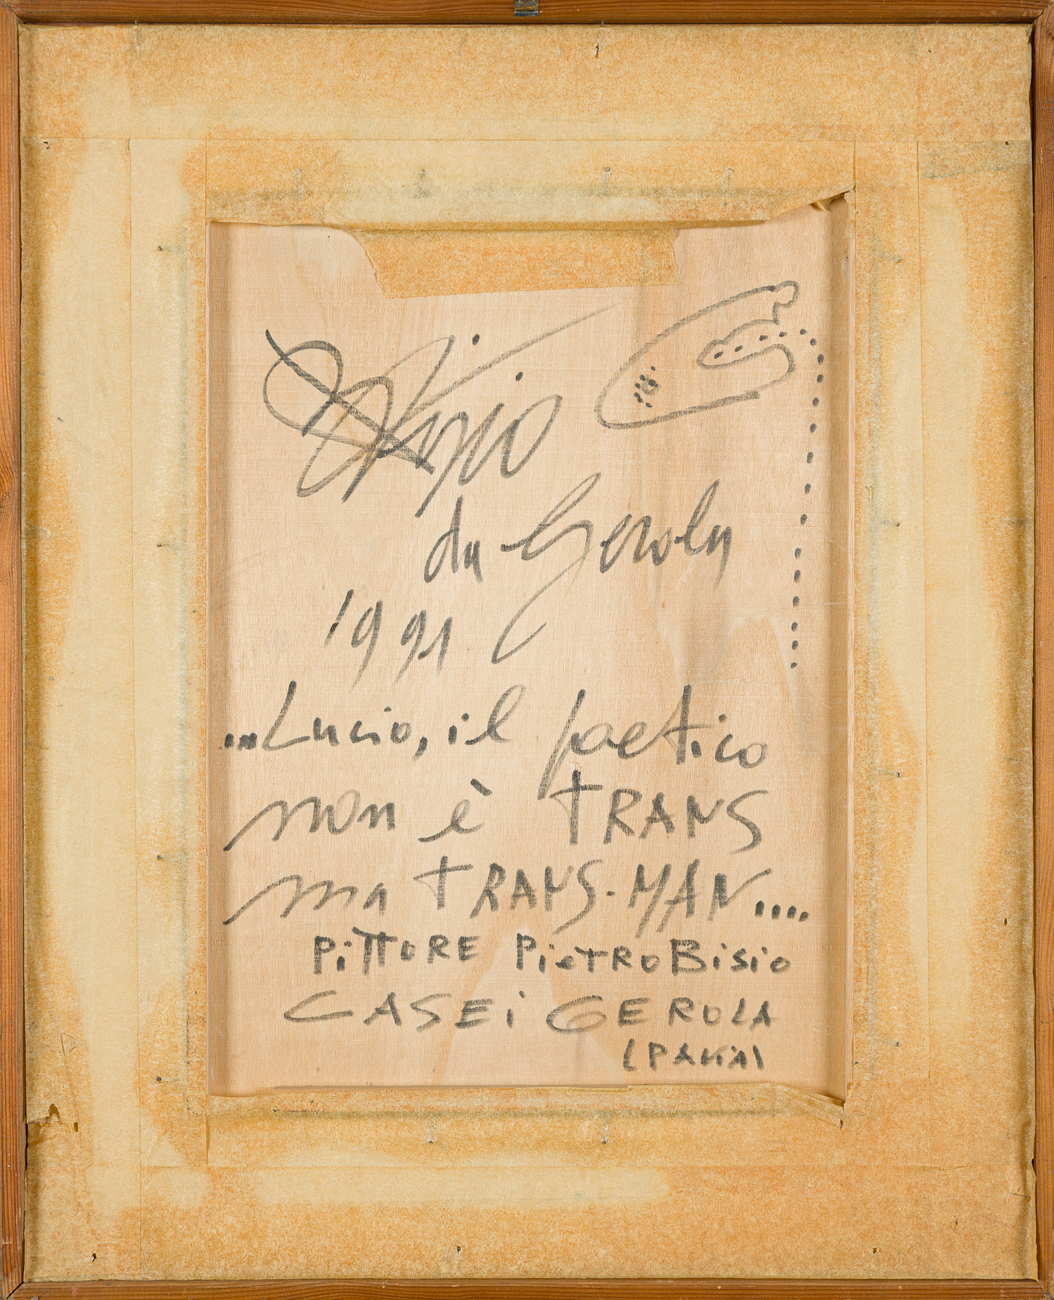 Bisio
da Gerola
1991
...Lucio, il poetico
non è TRANS
ma TRANS-MAN....
PiTTORE PieTRO BiSiO
CASEi GEROLA
(PAViA)